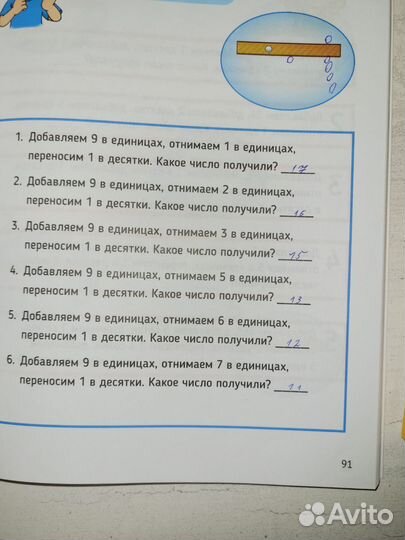 1. Добавляем 9 в единицах, отнимаем 1 в единицах,
переносим 1 в десятки. Какое число получили? 17
2. Добавляем 9 в единицах, отнимаем 2 в единицах,
переносим 1 в десятки. Какое число получили? 16
3. Добавляем 9 в единицах, отнимаем 3 в единицах,
переносим 1 в десятки. Какое число получили? 15
4. Добавляем 9 в единицах, отнимаем 5 в единицах,
переносим 1 в десятки. Какое число получили? 13
5. Добавляем 9 в единицах, отнимаем 6 в единицах,
переносим 1 в десятки. Какое число получили? 12
6. Добавляем 9 в единицах, отнимаем 7 в единицах,
переносим 1 в десятки. Какое число получили? 11
91
Avito